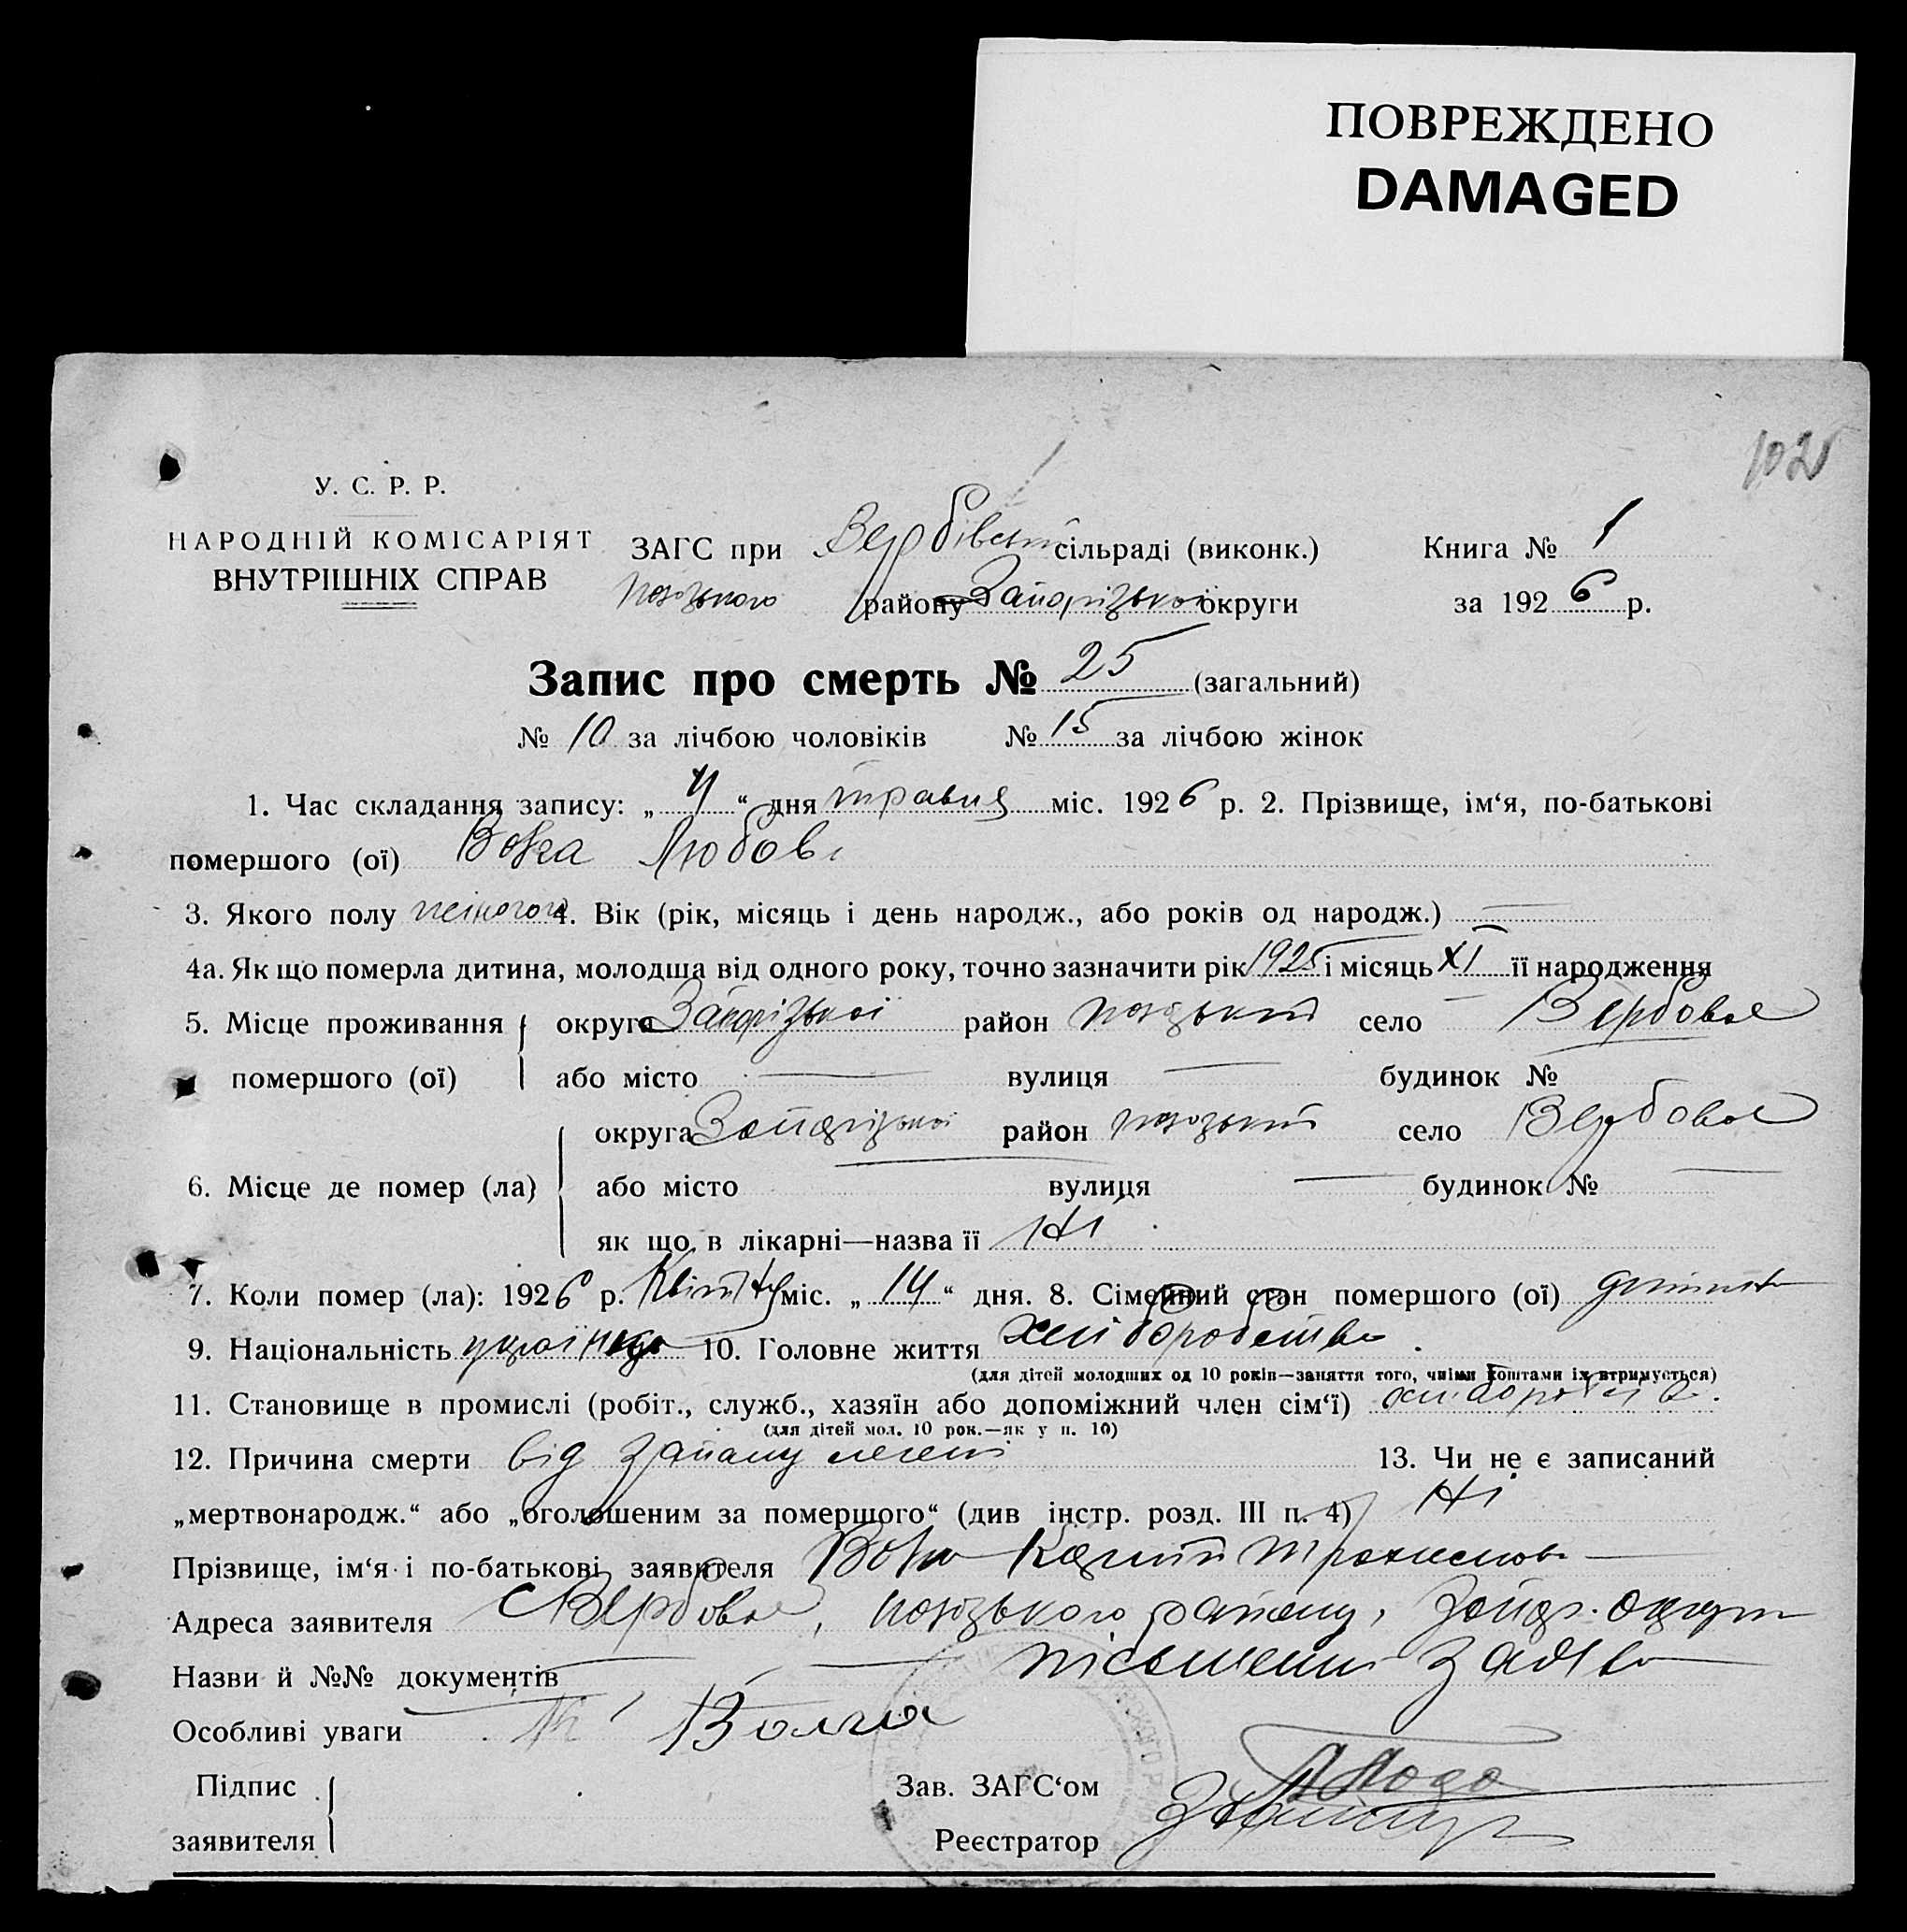 ПОВРЕЖДЕНО
DAMAGED
102
У. С. Р. Р.
НАРОДНІЙ КОМІСАРІЯТ
ВНУТРІШНІХ СПРАВ
ЗАГС при Вербівській сільраді (виконк.)
району Запорізької округи
Книга № 1
за 1926 р.
Запис про смерть № 25 (загальний)
№ 10 за лічбою чоловіків № 15 за лічбою жінок
1. Час складання запису: „ 4 “ дня травня міс. 1926 р. 2. Прізвище, ім‘я, по-батькові
помершого (ої) Вовка Любов
3. Якого полу жіночого 4. Вік (рік, місяць і день народж., або років од народж.) —
4а. Як що померла дитина, молодша від одного року, точно зазначити рік 1925 і місяць XI її народження
5. Місце проживання округа Запорізької район село Вербовое
помершого (ої) або місто — вулиця — будинок №
округа Запорізької район село Вербовое
6. Місце де помер (ла) або місто вулиця — будинок № —
як що в лікарні—назва її Ні
7. Коли помер (ла): 1926 р. Квітня міс. „ 14 “ дня. 8. Сімейний стан помершого (ої) дитина
9. Національність українця 10. Головне життя хліборобство
(для дітей молодших од 10 років—заняття того, чиїми коштами їх втримується)
11. Становище в промислі (робіт., служб., хазяїн або допоміжний член сім‘ї)
(для дітей мол. 10 рок.—як у п. 10)
12. Причина смерти від запалу легенів 13. Чи не є записаний
„мертвонародж.“ або „оголошеним за помершого“ (див інстр. розд. III п. 4) Ні
Прізвище, ім‘я і по-батькові заявителя Вовк
Адреса заявителя с Вербовое, району, Запор. округи
Назви й №№ документів
Особливі уваги
Підпис
заявителя
Зав. ЗАГС‘ом
Реєстратор